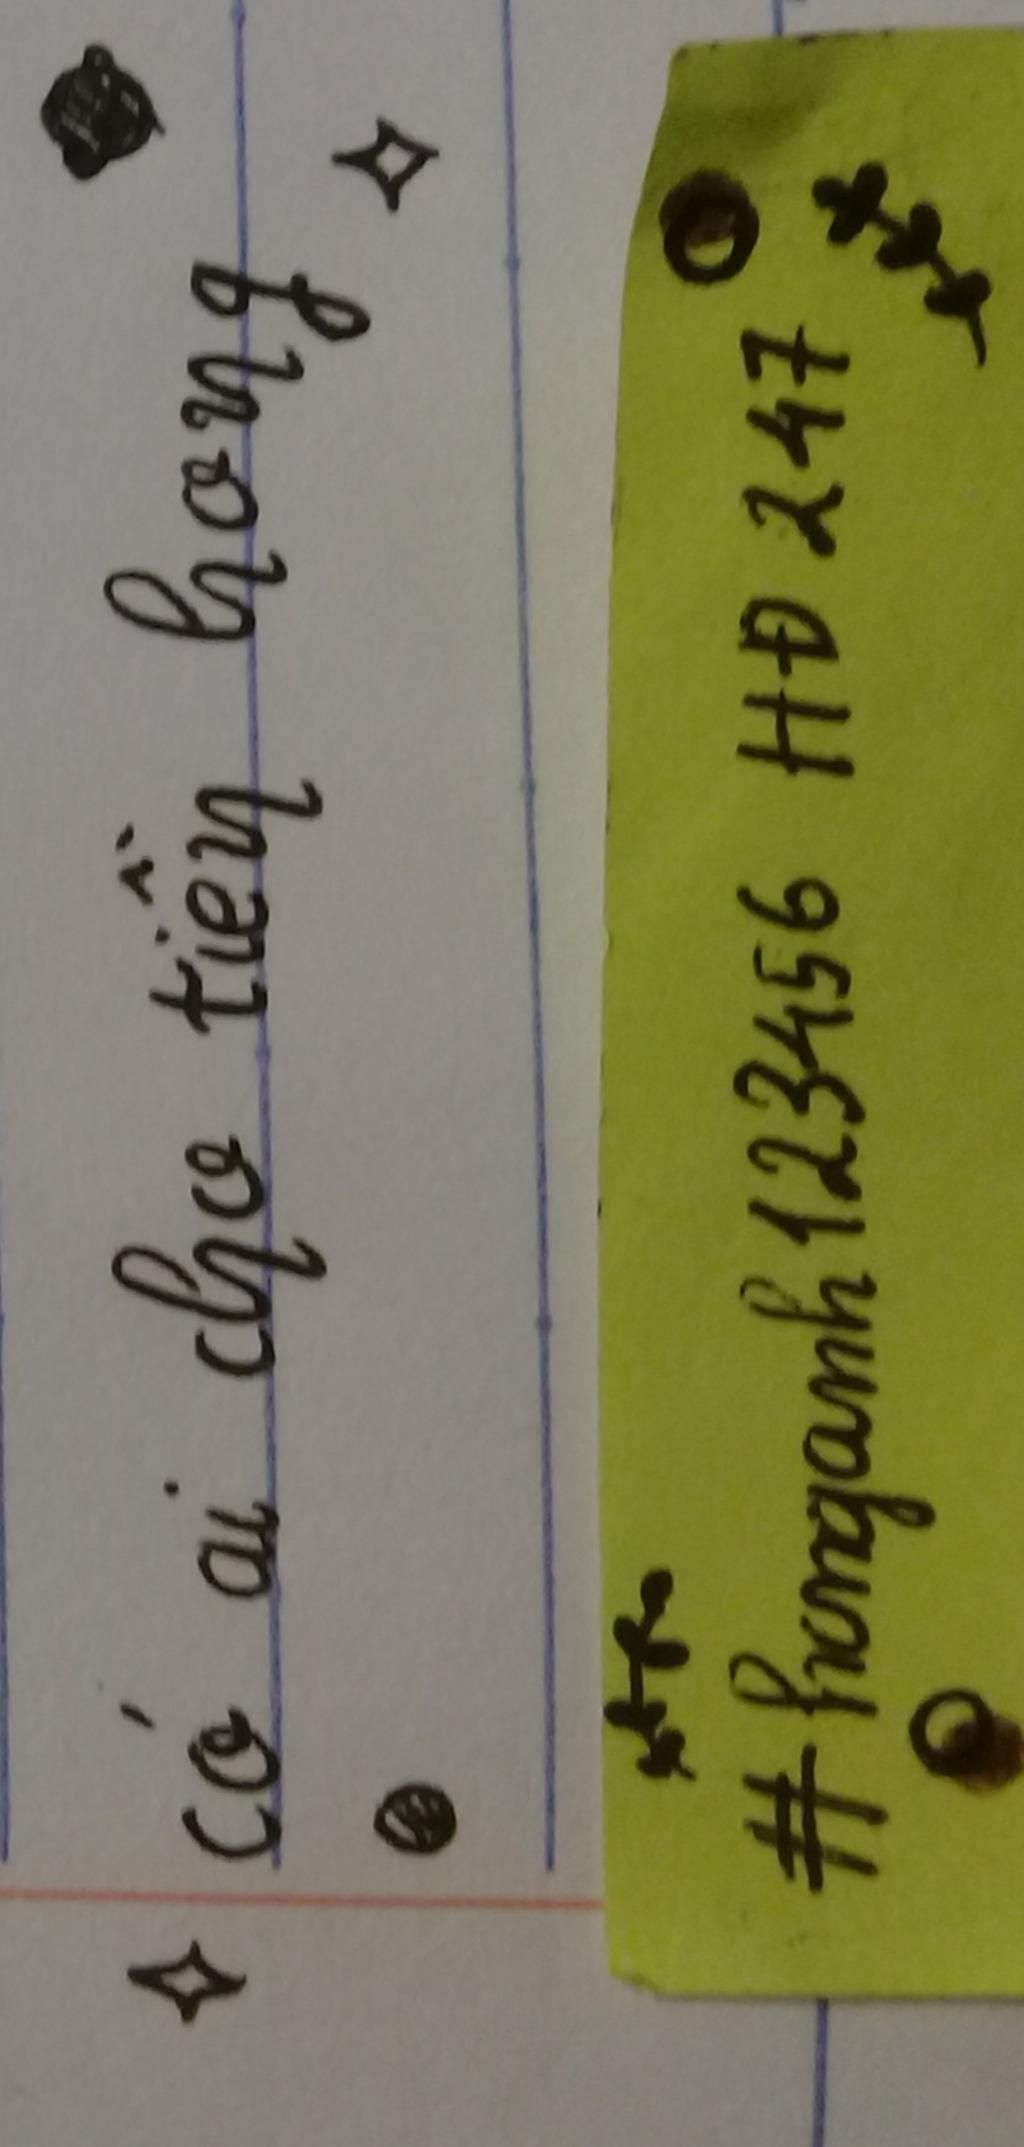 có ai cho tiền hong
# hoangoanh123456 HD 247